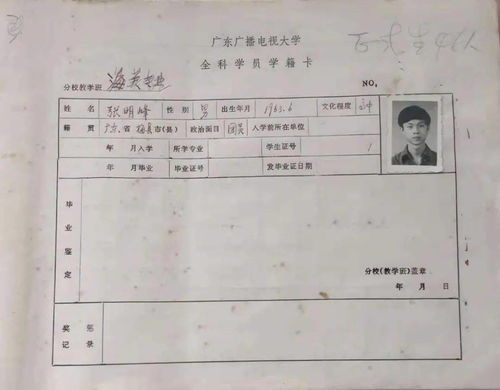 广东广播电视大学
全科学员学籍卡
分校教学班 海英专业 NO.
姓名 张明峰 性别 男 出生年月 1963.6 文化程度 高中
籍贯 广东省梅县市(县) 政治面目 团员 入学前所在单位
年 月入学 所学专业 学生证号 1
年 月毕业 毕业证号 发毕业证日期
毕业鉴定
分校(教学班)盖章
年 月 日
奖惩记录